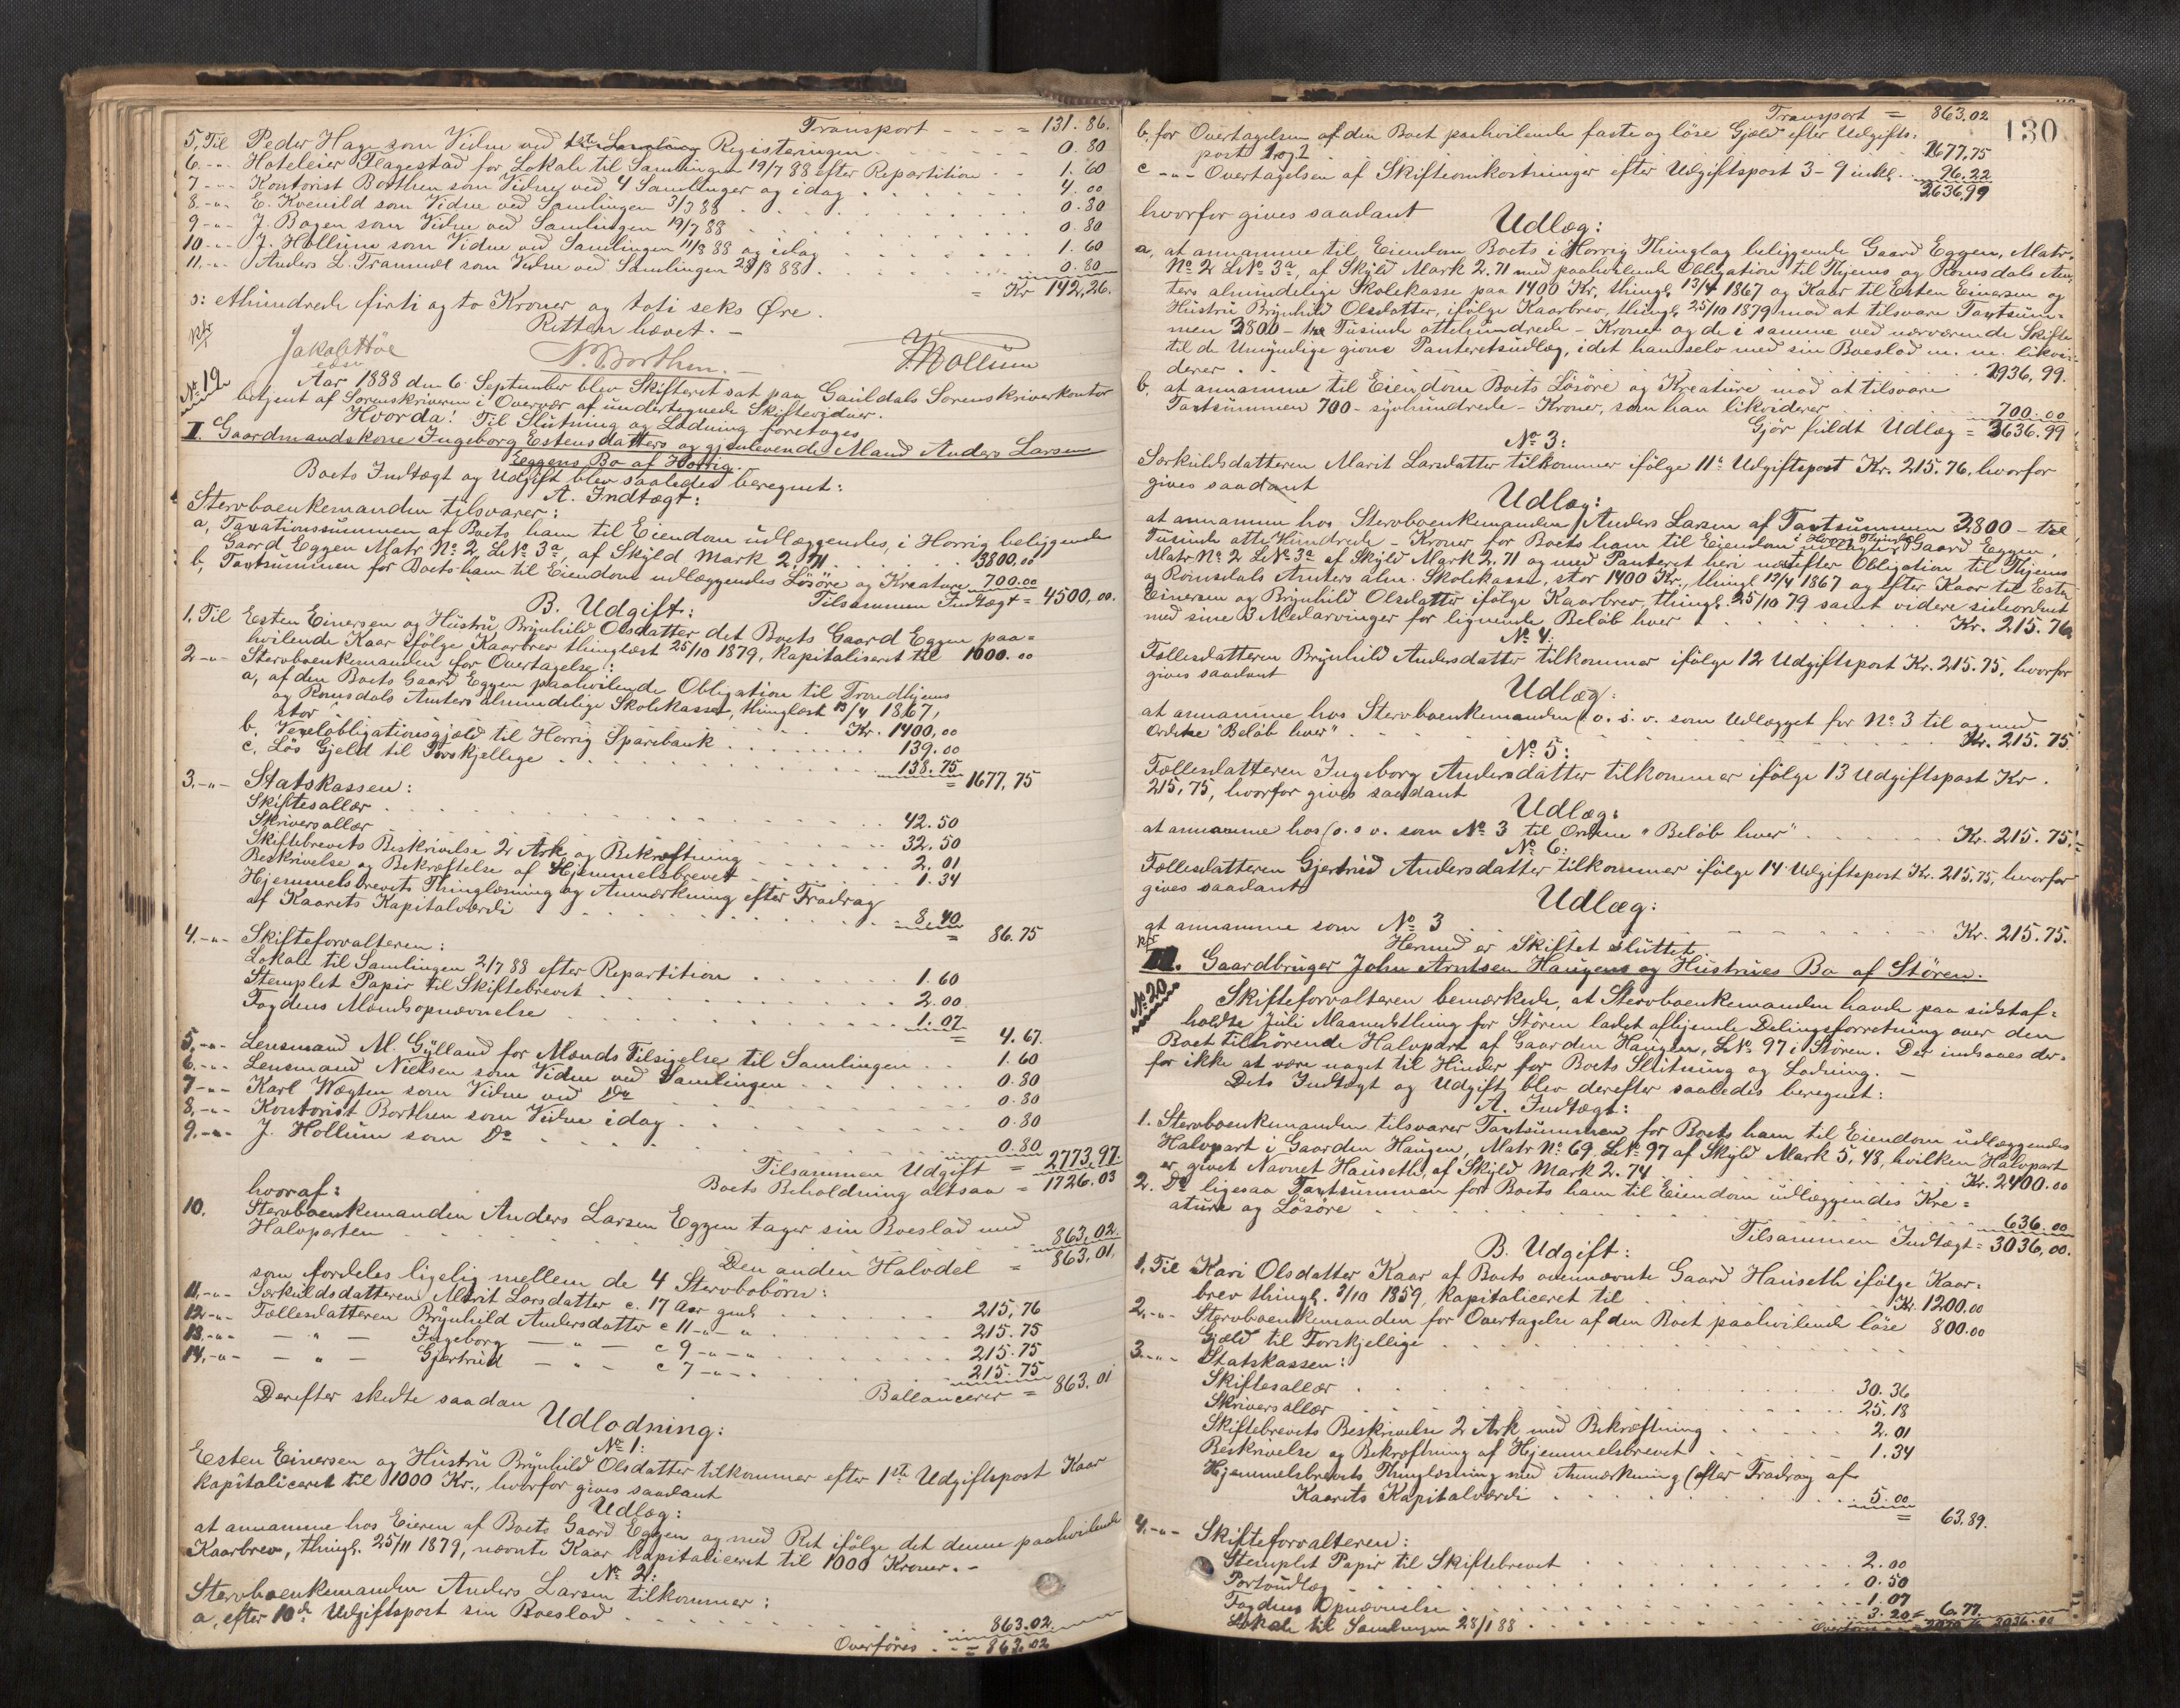 Transport - - - = 131.86.
5, Til Peder Hage som Vidne ved Registeringen 0.80
6 -"- Hoteleier Flagestad for Lokale til Samlingen 19/7 88 efter Repartition 1.60
7 -"- Kontorist Borthen som Vidne ved 4 Samlinger og idag 4.00
8 -"- E. Kvenild som Vidne ved Samlingen 3/3 88 0.80
9 -"- J. Bogen som Vidne ved Samlingen 19/7 88 0.80
10 -"- J. Hollum som Vidne ved Samlingen 11/8 88 og idag 1.60
11, -"- Anders L. Tranmæl som Vidne ved Samlingen 28/8 88 0.80
= Kr 142,26.
o: ethundrede firti og to Kroner og toti seks Øre.
Retten hævet. -
Jakob Høe N. Borthen. J. Hollum
edsv
No 19
Aar 1888 den 6 September blev Skifteret sat paa Gauldals Sorenskriverkontor
betjent af Sorenskriveren i Overvær af undertegnede Skiftevidner.
Hvorda! Til Slutning og Lodning foretoges
I. Gaardmandskone Ingeborg Estensdatters og gjenlevende Mand Anders Larsen
Eggens Bo af Horrig.
Boets Indtægt og Udgift blev saaledes beregnet:
A. Indtægt:
Stervboenkemanden tilsvarer:
a, Taxationssummen af Boets ham til Eiendom udlæggendes, i Horrig beliggende
Gaard Eggen Matr No 2, LNo 3a, af Skyld Mark 2.71 3800,00
b, Taxtsummen for Boets ham til Eiendom udlæggendes Løsøre og Kreature 700.00
Tilsammen Indtægt = 4500,00.
B. Udgift:
1. Til Esten Einersen og Hustru Brynhild Olsdatter det Boets Gaard Eggen paa=
hvilende Kaar ifølge Kaarbrev thinglæst 25/10 1879, kapitaliseret til 1000.00
2 -"- Stervboenkemanden for Overtagelse:
a, af den Boets Gaard Eggen paahvilende Obligation til Trondhjems
og Romsdals Amters almindelige Skolekasser, thinglæst 13/4 1867,
stor Kr. 1400,00
b. Vexelobligationsgjæld til Horrig Sparebank 139.00
c. Løs Gjeld til Forskjellige 138.75
= 1677,75
3, -"- Statskassen:
Skiftesallær 42.50
Skriversallær 32.50
Skiftebrevets Beskrivelse 2 Ark og Bekræftning 2,01
Beskrivelse og Bekræftelse af Hjemmelsbrevet 1.34
Hjemmelsbrevets Thinglæsning og Anmærkning efter Fradrag
af Kaarets Kapitalværdi 8,40
= 86.75
4. -"- Skifteforvalteren:
Lokale til Samlingen 2/7 88 efter Repartition 1.60
Stemplet Papir til Skiftebrevet 2.00
Fogdens Mandsopnævnelse 1.07
= 4.67
5. -"- Lensmand M. Gylland for Mands Tilsigelse til Samlingen 1.60
6. -"- Lensmand Nielsen som Vidne ved Samlingen 0.80
7 -"- Karl Wægten som Vidne ved Do 0.80
8, -"- Kontorist Borthen som Vidne idag 0.80
9. -"- J. Hollum som Do 0.80
Tilsammen Udgift = 2773,97.
Boets Beholdning altsaa = 1726.03
hvoraf:
10. Stervboenkemanden Anders Larsen Eggen tager sin Boeslod med
Halvparten 863,02.
Den anden Halvdel = 863,01.
som fordeles ligelig mellem de 4 Stervbobörn:
11, -"- Særkuldsdatteren Marit Larsdatter c. 17 Aar gml. 215,76
12 -"- Fællesdatteren Brynhild Andersdatter c 11 -"- " 215.75
13, -"- - " - Ingeborg - " - c 9 -"- " 215.75
14, -"- - " - Gjertrud - " - c 7 -"- . 215.75
Ballancerer = 863,01
Derefter skedte saadan
Udlodning:
No 1:
Esten Einersen og Hustru Brynhild Olsdatter tilkommer efter 1ste Udgiftspost Kaar
kapitaliceret til 1000 Kr., hvorfor gives saadant
Udlæg:
at annamme hos Eieren af Boets Gaard Eggen og med Ret ifølge det denne paahvilende
Kaarbrev, thingl. 25/11 1879, nævnte Kaar kapitaliceret til 1000 Kroner. -
No 2:
Stervboenkemanden Anders Larsen tilkommer:
a, efter 10de Udgiftspost sin Boeslod 863.02.
Overføres = 863.02
130
Transport = 863.02
b, for Overtagelsen af den Boet paahvilende faste og løse Gjæld efter Udgifts:
post 1 og 2 1677,75
c -"- Overtagelsen af Skifteomkostninger efter Udgiftspost 3-9 inkl. 96.22
2636,99
hvorfor gives saadant
Udlæg:
a, at annamme til Eiendom Boets i Horrig Thinglag beliggende Gaard Eggen, Matr.
No 2 LNo 3a, af Skyld Mark 2.71 med paahvilende Obligation til Thjems og Romsdals Am-
ters almindelige Skolekasse paa 1400 Kr, thingl. 13/4 1867 og Kaar til Esten Einersen og
Hustru Brynhild Olsdatter, ifølge Kaarbrev, thingl. 25/10 1879 mod at tilsvare Taxtsum-
men 3800 - tre Tusinde ottehundrede - Kroner og de i samme ved nærværende Skifte
til de Umyndige givne Panteretsudlæg, idet han selv med sin Boeslod m. m. likvi-
derer 2936,99.
b. at annamme til Eiendom Boets Løsøre og Kreature mod at tilsvare
Taxtsummen 700 - syvhundrede - Kroner, som han likviderer 700.00
Gjør fuldt Udlæg = 3636.99
No 3:
Særkuldsdatteren Marit Larsdatter tilkommer ifølge 11te Udgiftspost Kr. 215.76, hvorfor
gives saadant
Udlæg:
at annamme hos Stervboenkemanden Anders Larsen af Taxtsummen 3800 - tre
Tusinde otte Hundrede - Kroner for Boets ham til Eiendom i Horrig Thinglag udlagte Gaard Eggen,
Matr No 2 LNo 3a af Skyld Mark 2.71 og med Panteret heri næstefter Obligation til Thjems
og Romsdals Amters alm. Skolekasse, stor 1400 Kr., thingl. 13/4 1867 og efter Kaar til Esten
Einersen og Brynhild Olsdatter ifølge Kaarbrev, thingl. 25/10 79 samt videre sideordnet
med sine 3 Medarvinger for lignende Beløb hver Kr. 215.76
No 4:
Fællesdatteren Brynhild Andersdatter tilkommer ifølge 12 Udgiftspost Kr. 215.75, hvorfor
gives saadant
Udlæg:
at annamme hos Stervboenkemanden (o. s. v. som Udlægget for No 3 til og med
Ordene "Beløb hver" Kr. 215.75
No 5:
Fællesdatteren Ingeborg Andersdatter tilkommer ifølge 13 Udgiftspost Kr.
215,75, hvorfor gives saadant
Udlæg:
at annamme hos (o. s v. som No 3 til Ordene "Beløb hver" Kr. 215.75.
No 6:
Fællesdatteren Gjertrud Andersdatter tilkommer ifølge 14 Udgiftspost Kr. 215.75, hvorfor
gives saadant
Udlæg:
at annamme som No 3 Kr. 215.75.
Hermed er Skiftet sluttet.
II. Gaardbruger John Arntsen Haugens og Hustrues Bo af Støren.
No 20
Skifteforvalteren bemærkede, at Stervboenkemanden havde paa sidstaf=
holdte Juli Maanedsthing for Støren ladet afhjemle Delingsforretning over den
Boet tilhørende Halvpart af Gaarden Haugen, LNo 97 i Støren. Der indsaaes der-
for ikke at være noget til Hinder for Boets Slutning og Lodning. -
Dets Indtægt og Udgift blev derefter saaledes beregnet:
A. Indtægt:
1. Stervboenkemanden tilsvarer Taxtsummen for Boets ham til Eiendom udlæggendes
Halvpart i Gaarden Haugen, Matr No 69, LNo 97 af Skyld Mark 5,48, hvilken Halvpart
er givet Navnet Hauseth, af Skyld Mark 2.74 Kr. 2400.00
2. Do ligesaa Taxtsummen for Boets ham til Eiendom udlæggendes Kre=
ature og Løsøre 636.00
Tilsammen Indtægt = 3036,00.
B. Udgift:
1, Til Kari Olsdatter Kaar af Boets ovennævnte Gaard Hauseth ifølge Kaar-
brev thingl. 3/10 1859, kapitaliceret til Kr. 1200.00
2, -"- Stervboenkemanden for Overtagelse af den Boet paahvilende løse 800.00
Gjæld til Forskjellige
3. -"- Statskassen:
Skiftesallær 30.36
Skriversallær 25.18
Skiftebrevets Beskrivelse 2 Ark med Bekræftning 2.01
Beskrivelse og Bekræftning af Hjemmelsbrevet 1.34
Hjemmelsbrevets Thinglæsning med Anmærkning (efter Fradrag af
Kaarets Kapitalværdi 5.00
= 63.89.
4. -"- Skifteforvalteren:
Stemplet Papir til Skiftebrevet 2.00
Portoudlæg 0.50
Fogdens Opnævnelse 1.07
Lokale til Samlingen 28/1 88 3.20 = 6.77.
Overføres 3036.00